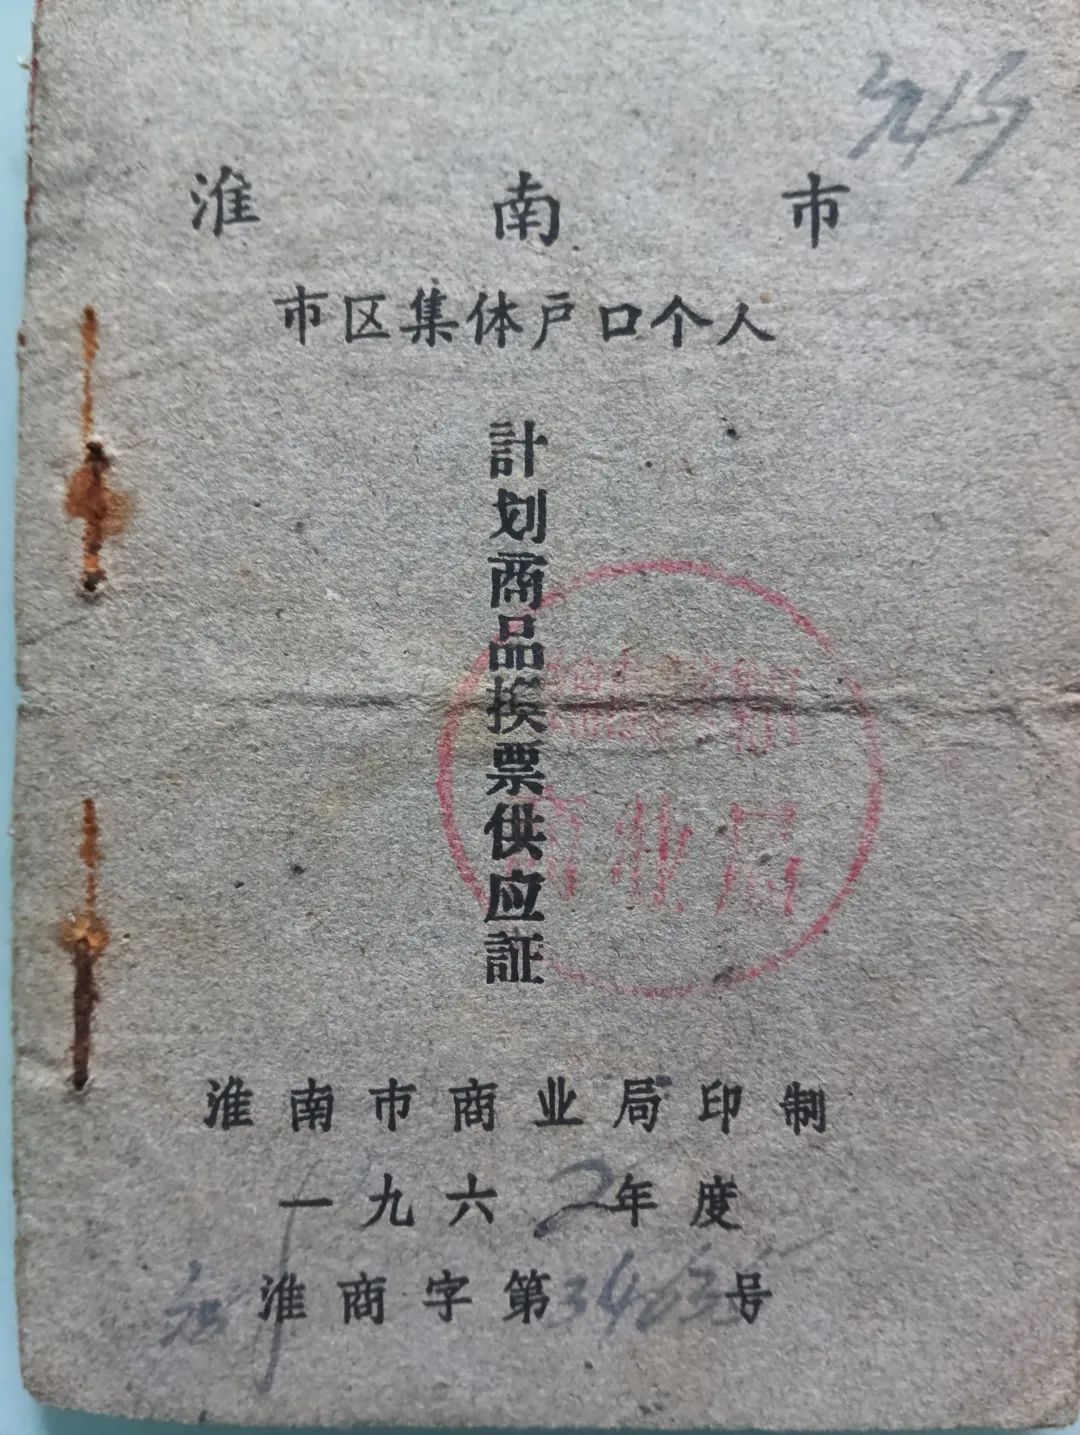 淮南市
市区集体戶口个人
計划商品挨票供应証
商业局
淮南市商业局印制
一九六2年度
淮商字第号